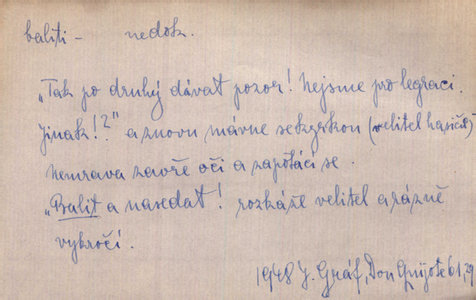 baliti – nedok.
„Tak po druhý dávat pozor! Nejsme pro legraci.
Jinak!?" a znovu mávne sekyrkou (velitel hasičů)
Nemrava zavře oči a zapotácí se.
„Balit a nasedat! rozkáže velitel a rázně
vykročí.
1948 J. Gráf, Don Quijote 61,29